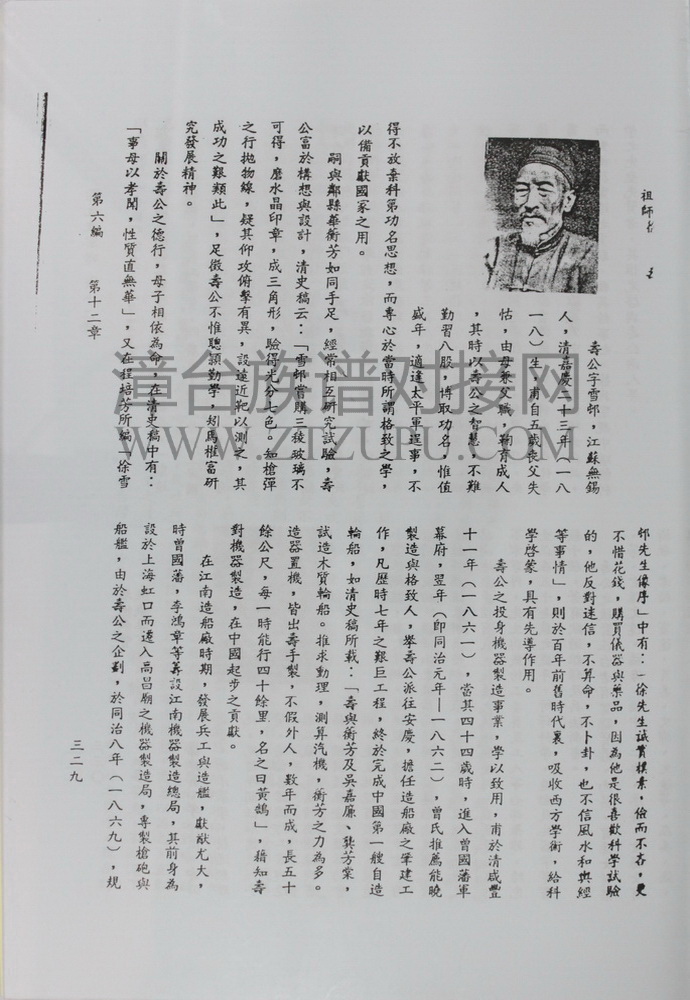 祖師
壽公字雪邨，江蘇無錫
人，清嘉慶二十三年（一八
一八）生，甫自五歲喪父失
怙，由母兼父職，鞠育成人
，其時以壽公之智慧，不難
勤習八股，博取功名，惟值
盛年，適逢太平軍逞事，不
得不放棄科第功名思想，而專心於當時所謂格致之學，
以備貢獻國家之用。
嗣與鄰縣華衡芳如同手足，經常相互研究試驗，壽
公富於構想與設計，清史稿云：「雪邨嘗購三稜玻璃不
可得，磨水晶印章，成三角形，驗得光分七色。知槍彈
之行拋物線，疑其仰攻俯擊有異，設遠近靶以測之，其
成功之艱類此」，足徵壽公不惟聰穎勤學，別馬權富研
究發展精神。
關於壽公之德行，母子相依為命，在清史稿中有：
「事母以孝聞，性質直無華」，又在程培芳所編「徐雪
邨先生像序」中有：「徐先生誠實樸素，儉而不吝，更
不惜花錢，購買儀器與藥品，因為他是很喜歡科學試驗
的，他反對迷信，不算命，不卜卦，也不信風水和與經
等事情」，則於百年前舊時代裏，吸收西方學術，給科
學啓蒙，具有先導作用。
壽公之投身機器製造事業，學以致用，甫於清咸豐
十一年（一八六一），當其四十四歲時，進入曾國藩軍
幕府，翌年（即同治元年—一八六二），曾氏推薦能曉
製造與格致人，舉壽公派往安慶，擔任造船廠之肇建工
作，凡歷時七年之艱巨工程，終於完成中國第一艘自造
輪船，如清史稿所載：「壽與衡芳及吳嘉廉、龔芸棠，
試造木質輪船。推求動理，測算汽機，衡芳之力為多。
造器置機，皆出壽手製，不假外人，數年而成，長五十
餘公尺，每一時能行四十餘里，名之曰黃鵠」，藉知壽
對機器製造，在中國起步之貢獻。
在江南造船廠時期，發展兵工與造艦，獻猷尤大，
時曾國藩，李鴻章等籌設江南機器製造總局，其前身為
設於上海虹口而遷入高昌廟之機器製造局，專製槍砲與
船艦，由於壽公之企劃，於同治八年（一八六九），規
第六編　第十二章
三二九
漳台族谱对接网
WWW.ZTZUPU.COM